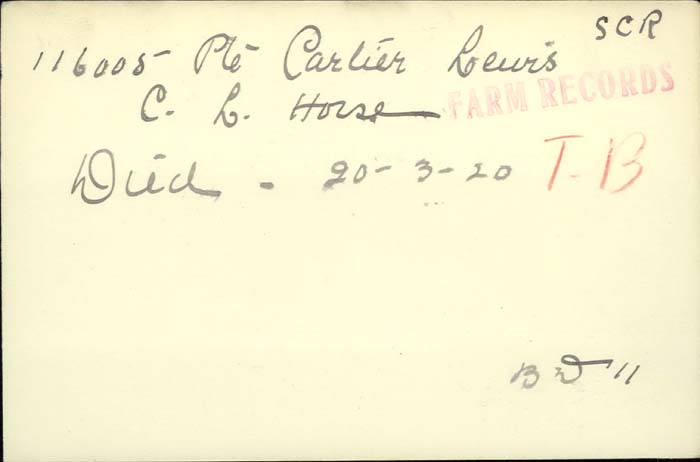 SCR
116005 Pte Cartier Lewis
FARM RECORDS
C. L. Horse
Died - 20-3-20 T-B
B D 11